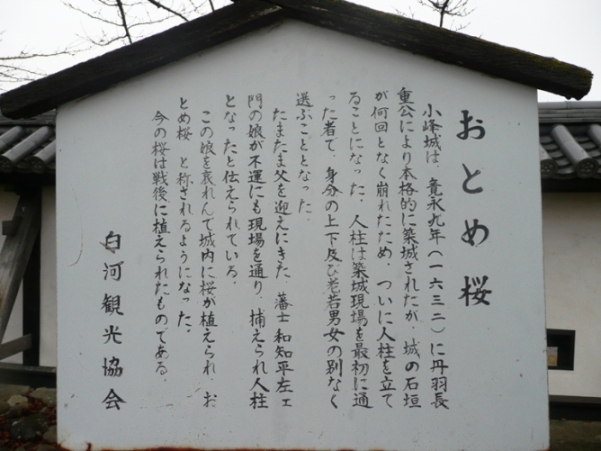 おとめ桜
小峰城は、寛永九年(一六三二)に丹羽長
重公により本格的に築城されたが、城の石垣
が何回となく崩れたため、ついに人柱を立て
ることになった。人柱は築城現場を最初に通
った者で、身分の上下及び老若男女の別なく
選ぶこととなった。
たまたま父を迎えにきた、藩士和知平左エ
門の娘が不運にも現場を通り、捕えられ人柱
となったと伝えられている。
この娘を哀れんで城内に桜が植えられ、お
とめ桜 と称されるようになった。
今の桜は戦後に植えられたものである。
白河観光協会